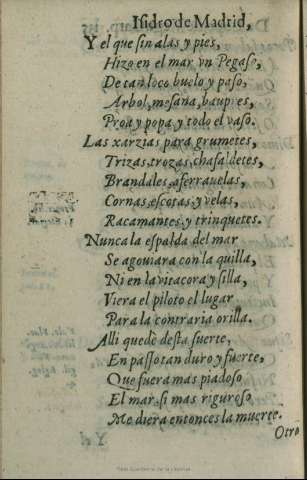 Isidro de Madrid,
Y el que sin alas y pies,
Hizo en el mar vn Pegaso,
De tan loco buelo y paso,
Arbol, mesana, baupres,
Proa y popa, y todo el vaso.
Las xarzias para grumetes,
Trizas, trozas, chafaldetes,
Brandales, aferrauelas,
Cornas, escotas, y velas,
Racamantes, y trinquetes.
Nunca la espalda del mar
Se agouiara con la quilla,
Ni en la vitacora y silla,
Viera el piloto el lugar
Para la contraria orilla.
Alli quedè desta suerte,
En passo tan duro y fuerte,
Que fuera mas piadoso
El mar, si mas riguroso
Me diera entonces la muerte.
Otro